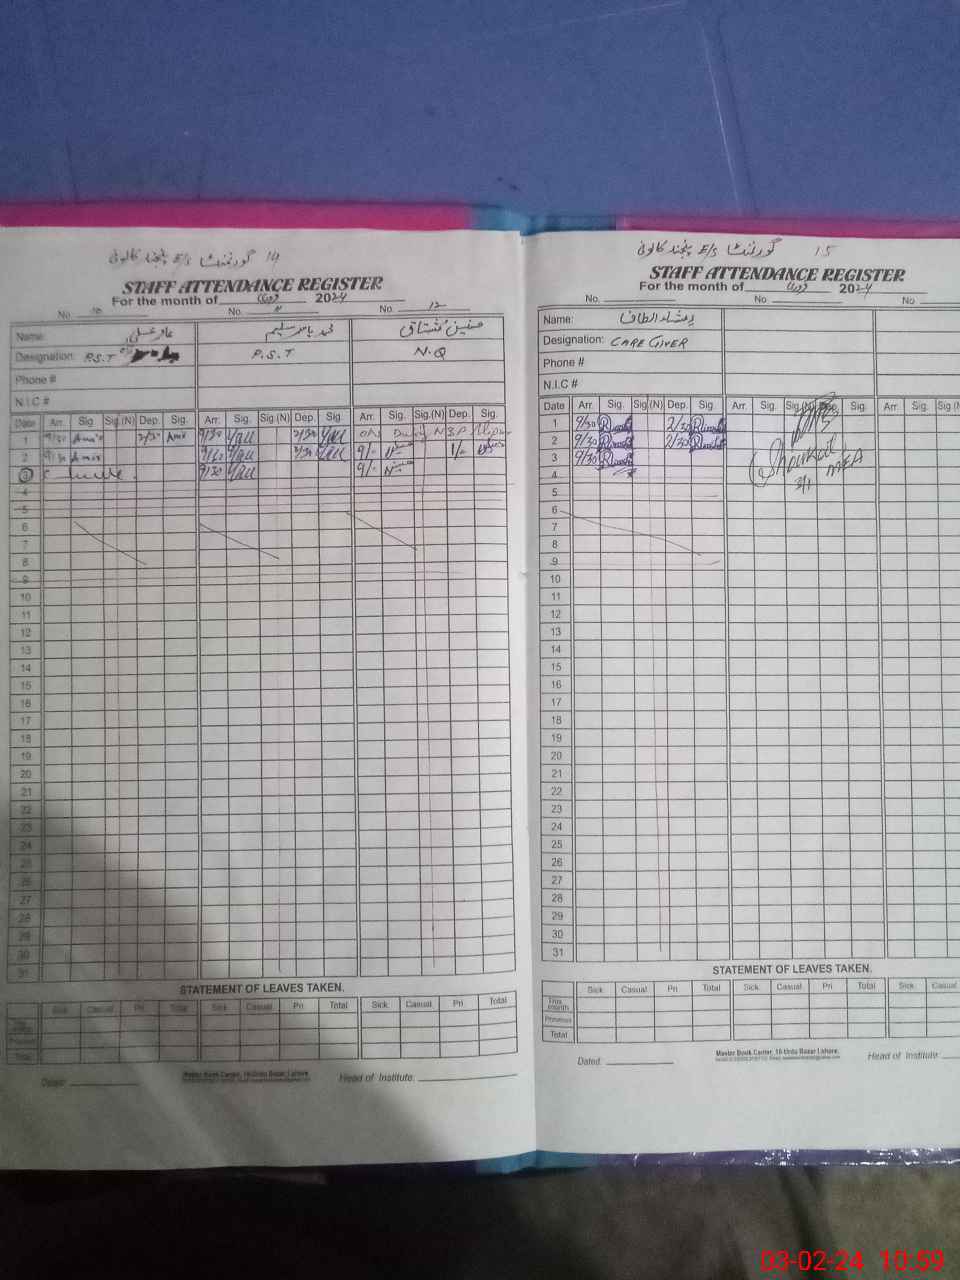 گورنمنٹ E/S پنجند کالونی 14
STAFF ATTENDANCE REGISTER
For the month of فروری 2024
No. No. 11 No. 12
Name: محمد یاسر سلیم حسنین مشتاق
Designation: P.S.T P.S.T N.Q
Phone #
N.I.C #
Date Arr. Sig. Sig.(N) Dep. Sig. Arr. Sig. Sig.(N) Dep. Sig. Arr. Sig. Sig.(N) Dep. Sig.
1 9/30 Amir 2/30 Amir 9/30 2/30 ON Duty
2 9/30 Amir 9/30 2/30 9/- 1/-
3 9/30 9/-
4
5
6
7
8
9
10
11
12
13
14
15
16
17
18
19
20
21
22
23
24
25
26
27
28
29
30
31
STATEMENT OF LEAVES TAKEN.
Sick Casual Pri Total Sick Casual Pri Total Sick Casual Pri Total
This month
Previous
Total
Master Book Center, 16-Urdu Bazar Lahore.
Dated: Head of Institute:
گورنمنٹ E/S پنجند کالونی 15
STAFF ATTENDANCE REGISTER
For the month of فروری 2024
No. No. No
Name: ارشاد الطاف
Designation: CARE GIVER
Phone #
N.I.C #
Date Arr. Sig. Sig.(N) Dep. Sig. Arr. Sig. Sig.(N) Dep. Sig. Arr. Sig. Sig.(N)
1 9/30 2/30
2 9/30 2/30
3 9/30
Shoukat
MEA
4
5
6
7
8
9
10
11
12
13
14
15
16
17
18
19
20
21
22
23
24
25
26
27
28
29
30
31
STATEMENT OF LEAVES TAKEN.
Sick Casual Pri Total Sick Casual Pri Total Sick Casual
This month
Previous
Total
Master Book Center, 16-Urdu Bazar Lahore.
Dated: Head of Institute:
03-02-24 10:59